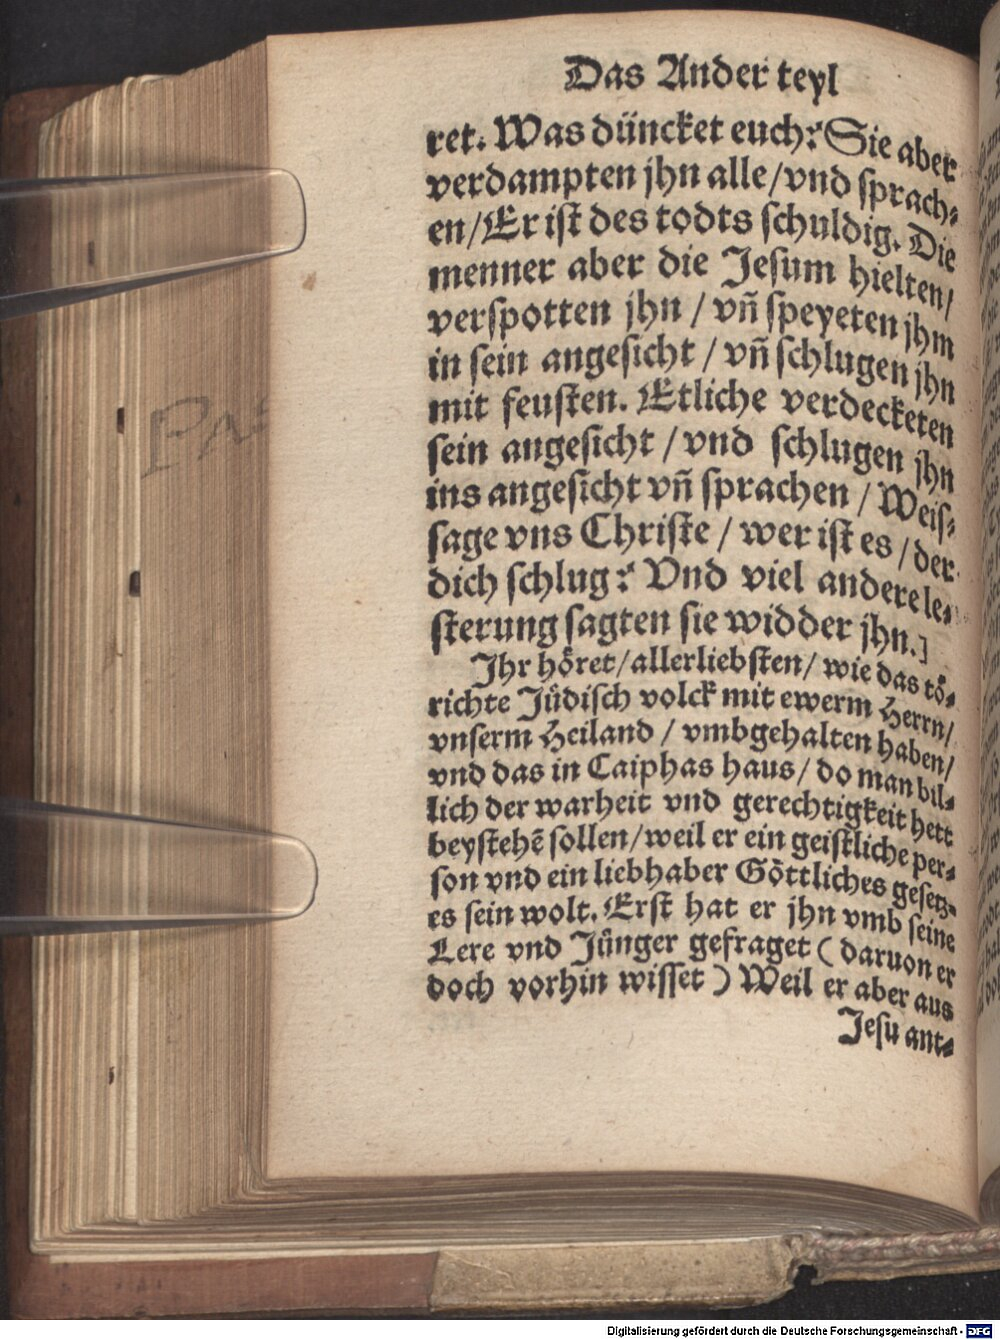 Das Ander teyl
ret. Was düncket euch? Sie aber
verdampten jhn alle/vnd sprach⸗
en/Er ist des todts schuldig. Die
menner aber die Jesum hielten/
verspotten jhn / vñ speyeten jhm
in sein angesicht / vñ schlugen jhn
mit feusten. Etliche verdecketen
sein angesicht / vnd schlugen jhn
ins angesicht vñ sprachen / Weis⸗
sage vns Christe / wer ist es / der
dich schlug? Vnd viel andere le⸗
sterung sagten sie widder jhn.]
Jhr hoͤret/allerliebsten/ wie das toͤ⸗
richte Juͤdisch volck mit ewerm Herrn/
vnserm Heiland / vmbgehalten haben/
vnd das in Caiphas haus/ do man bil⸗
lich der warheit vnd gerechtigkeit hett
beystehẽ sollen/weil er ein geistliche per⸗
son vnd ein liebhaber Goͤttliches gesetz⸗
es sein wolt. Erst hat er jhn vmb seine
Lere vnd Juͤnger gefraget ( daruon er
doch vorhin wisset ) Weil er aber aus
Jesu ant⸗
Digitalisierung gefördert durch die Deutsche Forschungsgemeinschaft - DFG